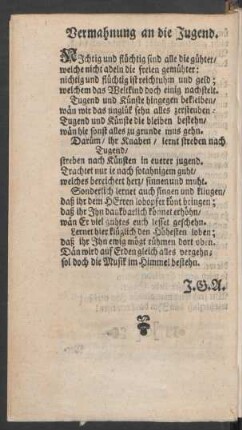 Vermahnung an die Jugend.
NIchtig und flüchtig sind alle die gühter/
welche nicht adeln die freien gemühter:
nichtig und flüchtig ist reichtuhm und geld;
welchem das Weltkind doch einig nachstelt.
Tugend und Künste hingegen bekleiben/
wän wir das unglük sehn alles zerstieben/
Tugend und Künste die bleiben bestehn/
wän hie sonst alles zu grunde mus gehn.
Darüm/ ihr Knaben/ lernt streben nach
Tugend/
streben nach Künsten in euerer jugend.
Trachtet nur ie nach sotahnigem guht/
welches bereichert hertz/ sinnen und muht.
Sonderlich lernet auch singen und klingen/
daß ihr dem HErren lobopfer könt bringen;
daß ihr Ihn dankbarlich könnet erhöhn/
wän Er viel guhtes euch lesset geschehn.
Lernet hier klüglich den Höhesten loben;
daß ihr Ihn ewig mögt rühmen dort oben.
Dän wird auf Erden gleich alles vergehn/
sol doch die Musik im Himmel bestehn.
J.G.A.